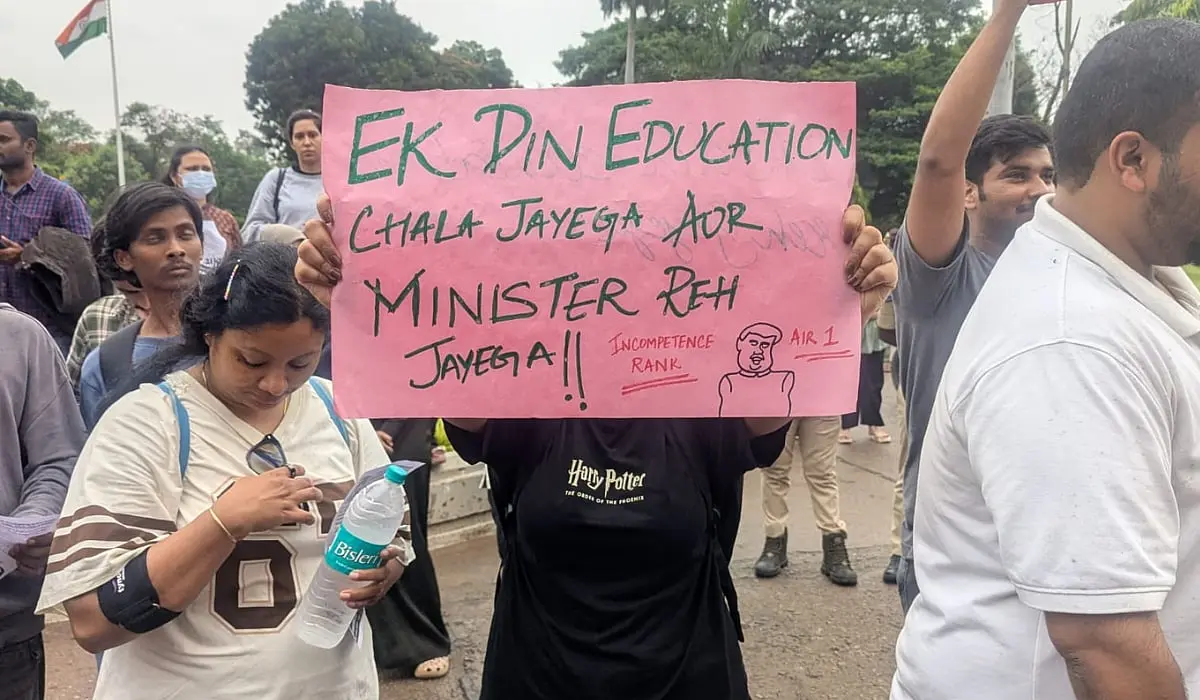 EK DIN EDUCATION
CHALA JAYEGA AOR
MINISTER REH
JAYEGA!!
INCOMPETENCE
RANK
AIR 1
Harry Potter
THE ORDER OF THE PHOENIX
Bisleri
8